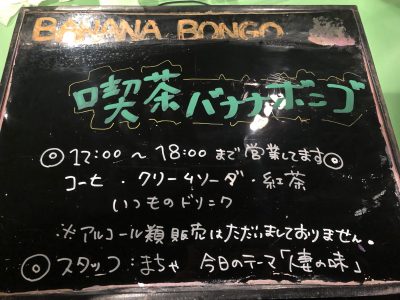 BANANA BONGO
喫茶バナナボンゴ
◎12:00〜18:00まで営業してます◎
コーヒ・クリームソーダ・紅茶
いつものドリンク
※アルコール類販売はただいましておりません。
◎スタッフ:まちゃ 今日のテーマ「凄の味」